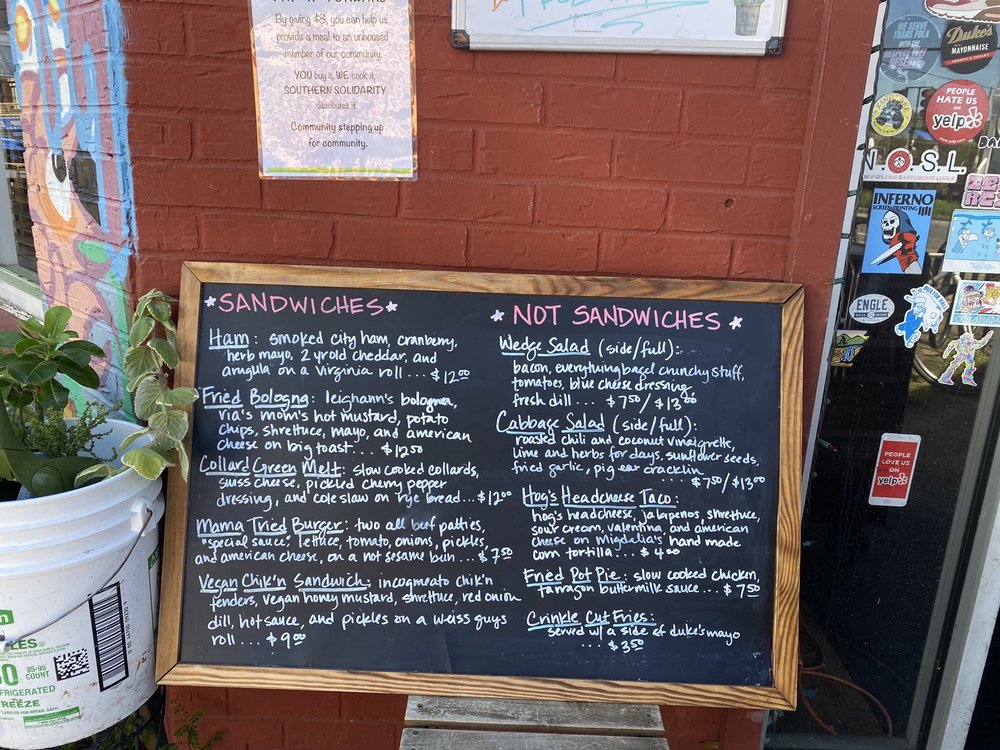 By giving $8, you can help us
provide a meal to an unhoused
member of our community.
YOU buy it, WE cook it,
SOUTHERN SOLIDARITY
distributes it.
Community stepping up
for community.
SANDWICHES
Ham: smoked city ham, cranberry,
herb mayo, 2 yr old cheddar, and
arugula on a Virginia roll ... $12.00
Fried Bologna: leighann's bologna,
ria's mom's hot mustard, potato
chips, shrettuce, mayo, and american
cheese on big toast... $12.50
Collard Green Melt: slow cooked collards,
swiss cheese, pickled cherry pepper
dressing, and cole slaw on rye bread...$12.00
Mama Tried Burger: two all beef patties,
"special sauce," lettuce, tomato, onions, pickles,
and american cheese, on a not sesame bun... $7.50
Vegan Chik'n Sandwich: incogmeato chik'n
tenders, vegan honey mustard, shrettuce, red onion
dill, hot sauce, and pickles on a weiss guys
roll ... $9.00
NOT SANDWICHES
Wedge Salad (side/full):
bacon, everything bagel crunchy stuff,
tomatoes, blue cheese dressing,
fresh dill ... $7.50/$13.00
Cabbage Salad (side/full):
roasted chili and coconut vinaigrette,
lime and herbs for days, sunflower seeds,
fried garlic, pig ear cracklin
... $7.50/$13.00
Hog's Headcheese Taco:
hog's headcheese, jalapeños, shrettuce,
sour cream, valentina, and american
cheese on Migdelia's hand made
corn tortilla... $4.00
Fried Pot Pie: slow cooked chicken,
tarragon buttermilk sauce... $7.50
Crinkle Cut Fries:
served w/ a side of duke's mayo
... $3.50
WE SERVE
TRANS FOLX
WITH THE
Duke's
MAYONNAISE
PEOPLE
HATE US
ON
yelp
N.O.S.L.
NEW ORLEANS SHUFFLEBOARD LEAGUE
INFERNO
SCREEN PRINTING
ENGLE
PEOPLE
LOVE US
ON
yelp
85-95
COUNT
REFRIGERATED
FREEZE